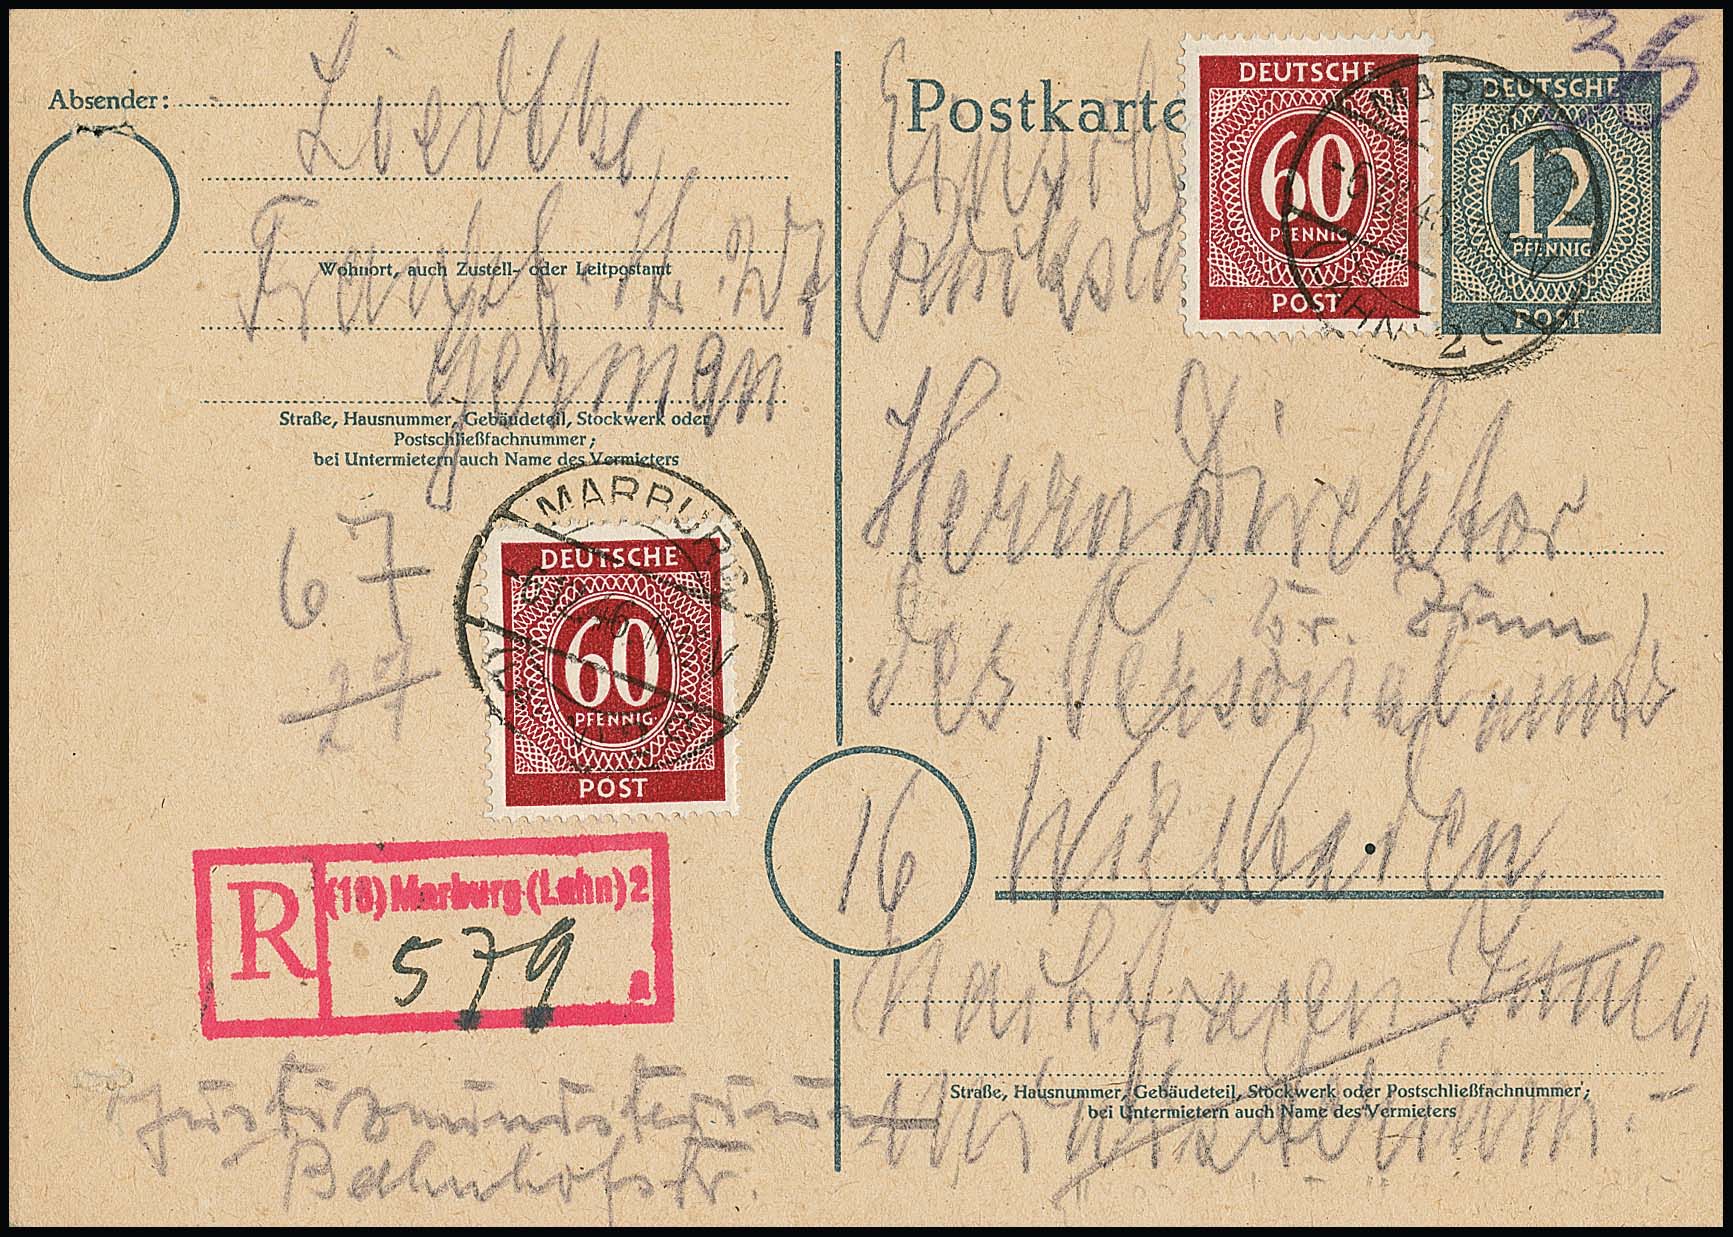 Absender:
Liedtke
Frankf.
Wohnort, auch Zustell- oder Leitpostamt
german
Straße, Hausnummer, Gebäudeteil, Stockwerk oder
Postschließfachnummer;
bei Untermietern auch Name des Vermieters
67
27
MARBURG
DEUTSCHE
60
PFENNIG
POST
R
(16) Marburg (Lahn) 2
579
a
Justizministerium
Bahnhofstr.
Postkarte
36
DEUTSCHE
60
PFENNIG
POST
DEUTSCHE
12
PFENNIG
POST
Herrn Direktor
des Personalamts
16 Wiesbaden
Nachfragen Innen
Ministerium.
Straße, Hausnummer, Gebäudeteil, Stockwerk oder Postschließfachnummer;
bei Untermietern auch Name des Vermieters